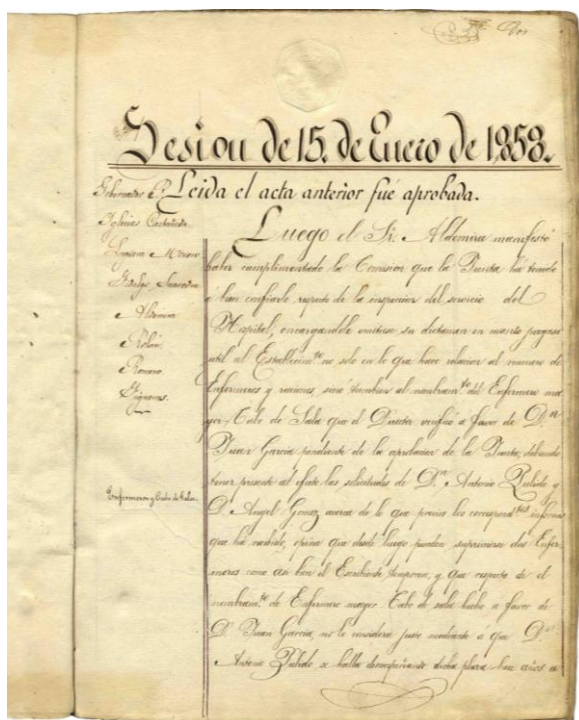 Dos
Sesion de 15. de Enero de 1858.
Gobernador P.
Iglesias Castañeda
Moreno
Hidalgo Saavedra
Aldemira
Rolan
Romero
Enfermeros y Cabo de Salas.
Leida el acta anterior fué aprobada.
Luego el Sr. Aldemira manifestó
haber cumplimentado la Comision que la Junta ha tenido
á bien confiarle respecto de la inspeccion del servicio del
Hospital, encargandole emitiese su dictamen en cuanto juzgase
util al Establecimto no solo en lo que hace relacion al numero de
Enfermeros y raciones, sino tambien al nombramto del Enfermero ma
yor, Cabo de Sala que el Director verificó á favor de Dn
Juan Garcia pendiente de la aprobacion de la Junta, debiendo
tener presente al efecto las solicitudes de Dn Antonio Pulido y
D. Angel Gomez acerca de lo que previos los correspondtes informes
que ha recibido, opina que desde luego pueden suprimirse dos Enfer-
meros como asi bien el Escribiente temporero, y que respecto de el
nombramto de Enfermero mayor Cabo de sala hecho á favor de
D. Juan Garcia, no le considera justo mediante á que Dn
Antonio Pulido se halla desempeñando dicha plaza hace años